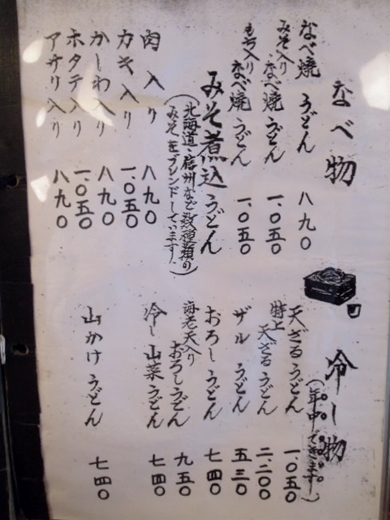 なべ物
なべ焼うどん 八九〇
みそ入りなべ焼うどん 一、〇五〇
もち入りなべ焼うどん 一、〇五〇
みそ煮込うどん
(北海道・信州など数種類の
みそをブレンドしています!)
肉入り 八九〇
カキ入り 一、〇五〇
かしわ入り 八九〇
ホタテ入り 一、〇五〇
アサリ入り 八九〇
冷し物
(年中できます!)
天ざるうどん 一、〇五〇
特上天ざるうどん 二、二〇〇
ザルうどん 五三〇
おろしうどん 七四〇
海老天入りおろしうどん 九五〇
冷し山菜うどん 七四〇
山かけうどん 七四〇